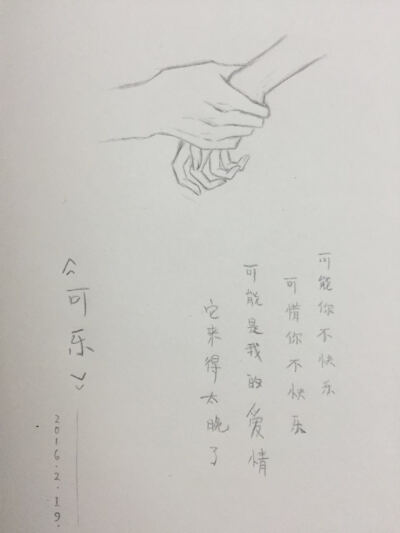 可能你不快乐
可惜你不快乐
可能是我的爱情
它来得太晚了
《可乐》
2016.2.19.